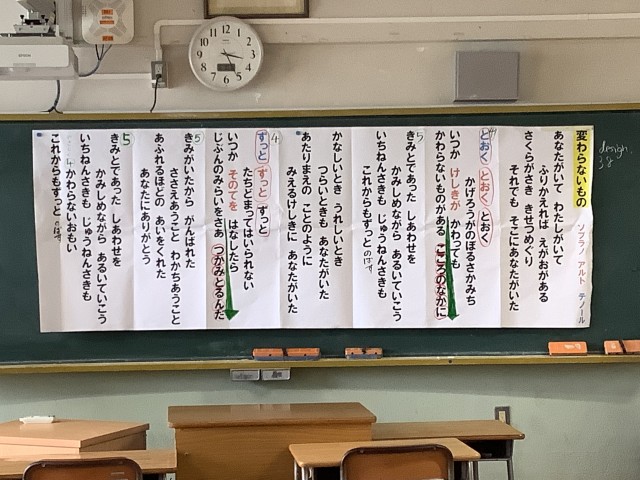 変わらないもの
ソプラノ アルト テノール
あなたがいて わたしがいて
ふりかえれば えがおがある
さくらがさき きせつめぐり
それでも そこにあなたがいた
とおく とおく とおく
かげろうがのぼるさかみち
いつか けしきが かわっても
かわらないものがある こころのなかに
5
きみとであった しあわせを
かみしめながら あるいていこう
いちねんさきも じゅうねんさきも
これからもずっと
かなしいとき うれしいとき
つらいときも あなたがいた
あたりまえの ことのように
みえるけしきに あなたがいた
4
ずっと ずっと ずっと
たちどまってはいられない
いつか そのてを はなしたら
じぶんのみらいをさあ つかみとるんだ
5
きみがいたから がんばれた
ささえあうこと わかちあうこと
あふれるほどの あいをくれた
あなたにありがとう
5
きみとであった しあわせを
かみしめながら あるいていこう
いちねんさきも じゅうねんさきも
かわらないおもい
これからもずっと
design
EPSON